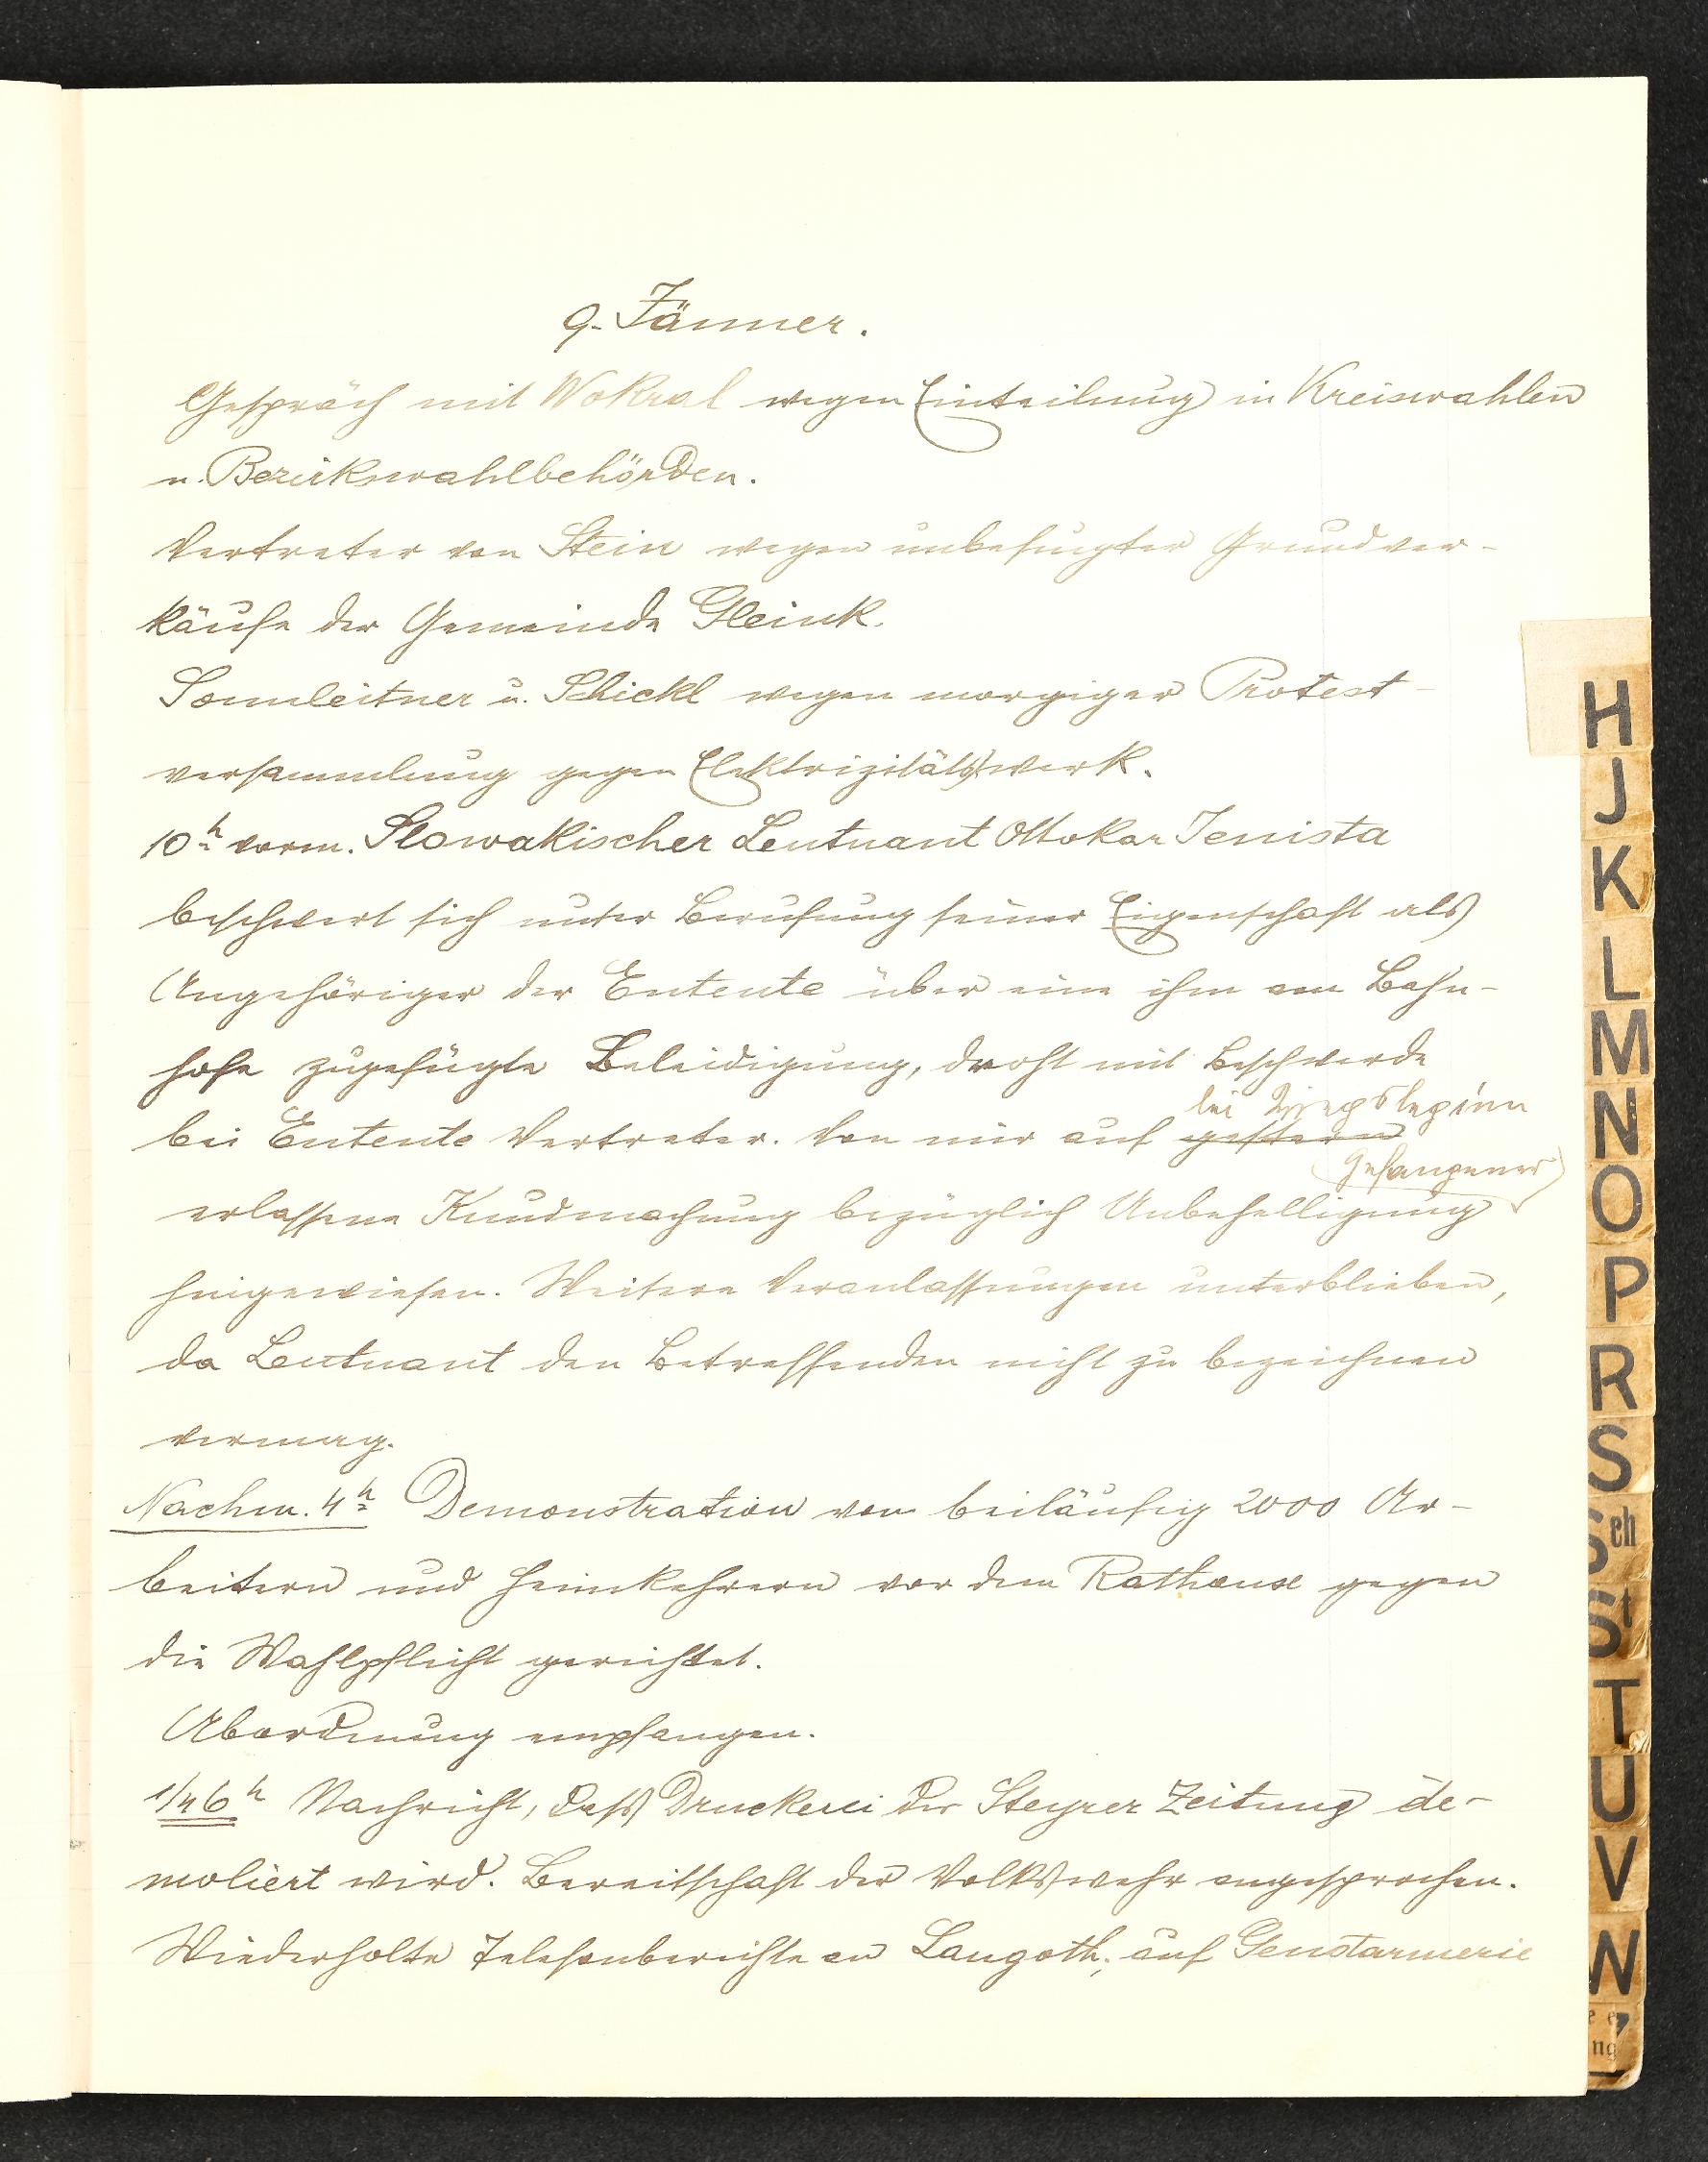 9. Jänner.
Gespräch mit Wokral wegen Einteilung in Kreiswahlen
u. Bezirkswahlbehörden.
Vertreter von Stein wegen unbefugter Grundver-
käufe der Gemeinde Gleink.
Sonnleitner u. Schickl wegen morgiger Protest-
versammlung gegen Elektrizitätswerk.
10h vorm. Slowakischer Leutnant Ottokar Jenista
beschwert sich unter Berufung seiner Eigenschaft als
Angehöriger der Entente über eine ihm am Bahn-
hofe zugefügte Beleidigung, droht mit Beschwerde
bei Kriegsbeginn
bei Entente Vertreter. Von mir auf gestern
Gefangener
erlassene Kundmachung bezüglich Unbehelligung
hingewiesen. Weitere Veranlassungen unterblieben,
da Leutnant den Betreffenden nicht zu bezeichnen
vermag.
Nachm. 4h Demonstration von beiläufig 2000 Ar-
beitern und Heimkehrern vor dem Rathause gegen
die Wahlpflicht gerichtet.
Abordnung empfangen.
1/4 6h Nachricht, dass Druckerei der Steyrer Zeitung de-
moliert wird. Bereitschaft der Volkswehr angesprochen.
Wiederholte Telefonberichte an Langoth; auf Gendarmerie
H
J
K
L
M
N
O
P
R
S
Sch
St
T
U
V
W